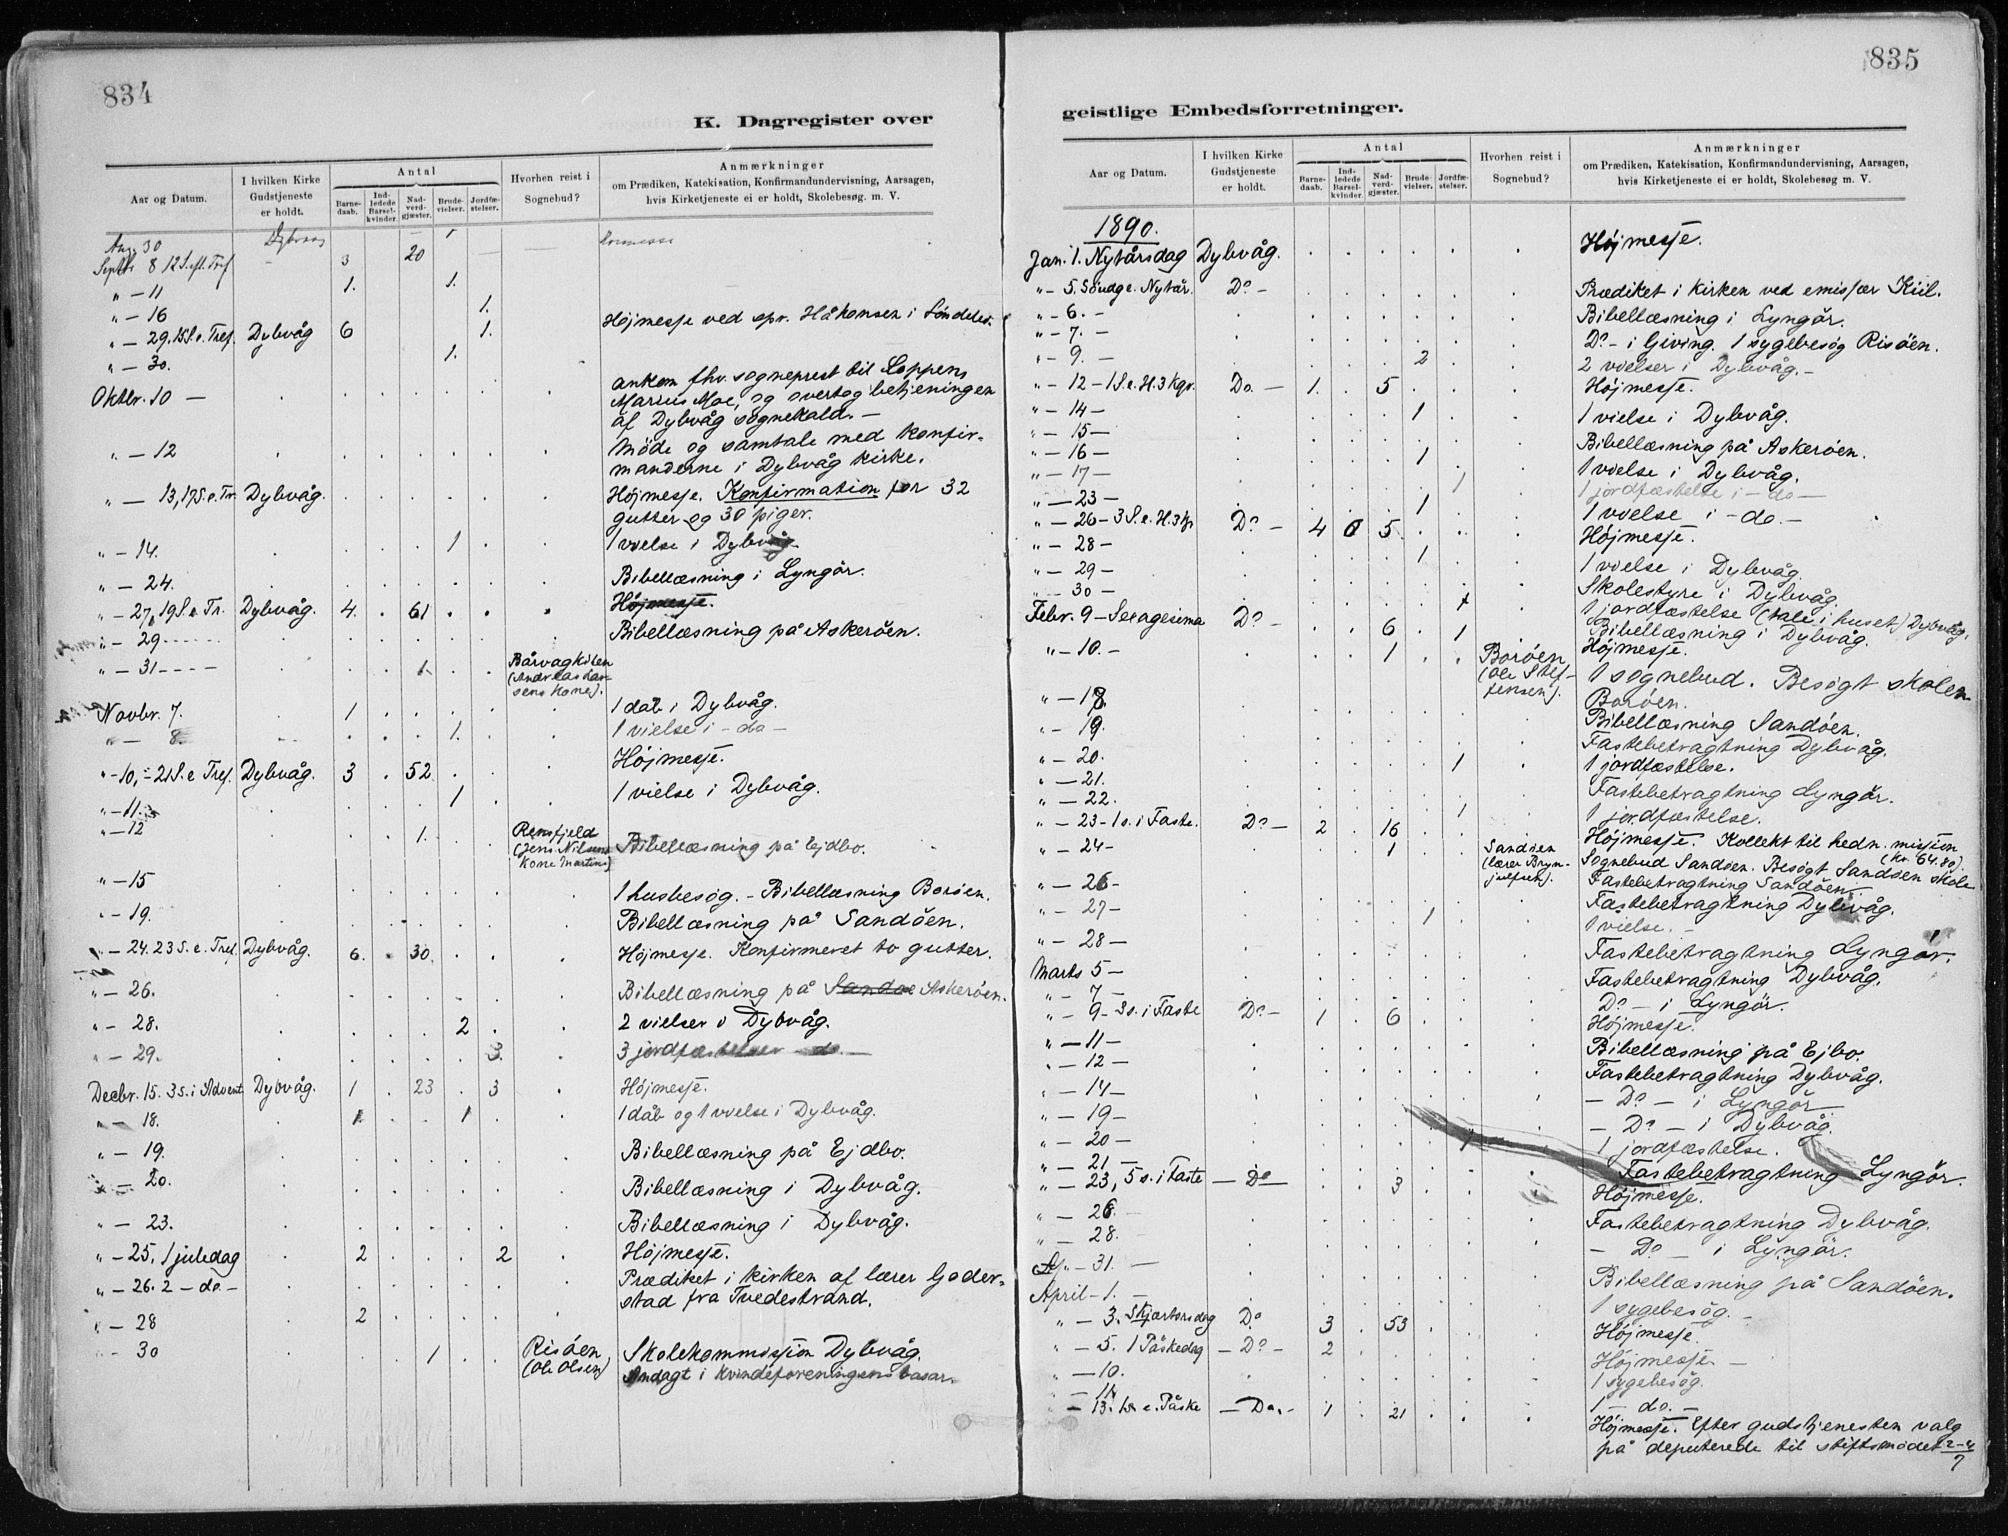 834
K. Dagregister over
Aar og Datum. I hvilken Kirke Gudstjeneste er holdt. Antal Barnedaab. Indledede Barselkvinder. Nadverdgjæster. Brudevielser. Jordfæstelser. Hvorhen reist i Sognebud? Anmærkninger om Prædiken, Katekisation, Konfirmandundervisning, Aarsagen, hvis Kirketjeneste ei er holdt, Skolebesøg. m. V.
Aug. 30 Dybvaag
Septbr 8 12 S. eft. Tref. 3 20
" - 11 1. 1.
" - 16 1.
" - 29. 15 S. e. Tref. Dybvåg 6 1. Højmesse ved spr. Håkonsen i Søndeled.
" - 30. 1.
Oktbr. 10 - ankom fhv. sogneprest til Loppens
Marius Moe, og overtog betjeningen
af Dybvåg sognekald. -
" - 12 Möde og samtale med konfir-
manderne i Dybvåg kirke.
" - 13, 17 S. e. Tr. Dybvåg. Højmesse. Konfirmation for 32
gutter og 30 piger.
" - 14. 1 1 vielse i Dybvåg.
" - 24. Bibellæsning i Lyngör.
" - 27, 19 S. e. Tr. Dybvåg. 4. 61 Højmesse.
" - 29. Bibellæsning på Askeröen.
" - 31 1. Bårvagkilen
(Andreas Lar-
sens kone).
Novbr. 7. 1 1 dåb i Dybvåg.
" - 8. 1. 1 vielse i - do -
" - 10, - 21 S. e. Tref. Dybvåg. 3 52 Højmesse.
" - 11. 1 1 vielse i Dybvåg.
" - 12 1. Rensfjeld
(Jens Nilsens
kone Martine) Bibellæsning på Ejdbo.
" - 15 1 husbesøg. - Bibellæsning Boröen.
" - 19. Bibellæsning på Sandöen.
" - 24. 23 S. e. Tref. Dybvåg. 6. 30. Højmesse. Konfirmeret to gutter.
" - 26. Bibellæsning på Sandöe Askeröen.
" - 28. 2 2 vielser i Dybvåg.
" - 29. 3. 3 jordfæstelser - do -
Decbr. 15. 3 s. i Advent Dybvåg. 1 23 3 Højmesse.
" - 18. 1 1 1 dåb og 1 vielse i Dybvåg.
" - 19. Bibellæsning på Ejdbo.
" - 20. Bibellæsning i Dybvåg.
" - 23. Bibellæsning i Dybvåg.
" - 25. 1 juledag 2 2 Højmesse.
" - 26. 2 - do. - Prædiket i kirken af lærer Goder-
stad fra Tvedestrand.
" - 28 2
" - 30 1 Risöen
(Ole Olsen) Skolekommission Dybvåg.
Andagt i kvindeforeningens basar.
835
geistlige Embedsforretninger.
Aar og Datum. I hvilken Kirke Gudstjeneste er holdt. Antal Barnedaab. Indledede Barselkvinder. Nadverdgjæster. Brudevielser. Jordfæstelser. Hvorhen reist i Sognebud? Anmærkninger om Prædiken, Katekisation, Konfirmandundervisning, Aarsagen, hvis Kirketjeneste ei er holdt, Skolebesøg. m. V.
1890.
Jan. 1. Nytårsdag Dybvåg. Højmesse.
" - 5. Söndg e. Nytår. Do - Prædiket i kirken ved emissær Kiil.
" - 6. - Bibellæsning i Lyngör.
" - 7. - Do - i Giving. 1 sygebesög Risöen.
" - 9. - 2 2 vielser i Dybvåg. -
" - 12 - 1 S. e. H. 3 kgr. Do. - 1. 5 Højmesse.
" - 14 - 1 1 vielse i Dybvåg.
" - 15 - Bibellæsning på Askeröen.
" - 16 - 1 1 vielse i Dybvåg.
" - 17 - 1 1 jordfæstelse i - do -
" - 23 - 1 1 vielse i - do. -
" - 26 - 3 S. e. H. 3 kgr Do - 4 0 5 Højmesse.
" - 28 - 1 1 vielse i Dybvåg
" - 29 - Skolestyre i Dybvåg
" - 30 - 1 jordfæstelse (tale i huset) Dybvåg.
Bibellæsning i Dybvåg.
Febr. 9 - Sexagesima Do - 6 1 Højmesse.
" - 10. - 1 Boröen
(Ole Stef-
fensen). 1 sognebud. Besögt skolen
Boröen.
" - 18. Bibellæsning Sandöen.
" - 19. Fastebetragtning Dybvåg.
" - 20. 1 1 jordfæstelse.
" - 21. Fastebetragtning Lyngör.
" - 22. 1 1 jordfæstelse.
" - 23 - 1 s. i Faste. Do - 2 16 Højmesse. Kollekt til hedn. mission
(kr. 64.80).
" - 24 - 1 Sandöen
(lærer Bryn-
julfsen). Sognebud Sandöen. Besögt Sandöen skole
" - 26 - Fastebetragtning Sandöen.
Fastebetragtning Dybvåg.
" - 27 - 1 1 vielse. -
" - 28 - Fastebetragtning Lyngör.
Marts 5 - Fastebetragtning Dybvåg.
" - 7 - Do - i Lyngör.
" - 9 - 3 s. i Faste Do - 1 6 Højmesse.
" - 11 - Bibellæsning på Ejbo.
" - 12 - Fastebetragtning Dybvåg.
" - 14 - - Do - i Lyngör
" - 19 - - Do - i Dybvåg.
" - 20 - 1 1 jordfæstelse.
" - 21 - Fastebetragtning Lyngör.
" - 23, 5 s. i Faste - Do - 3 Højmesse.
" - 26. Fastebetragtning Dybvåg.
" - 28. - Do - i Lyngör.
" - 31. - Bibellæsning på Sandöen.
April - 1. - 1 sygebesög. -
" - 3. Skjærtorsdag Do 3 53 Højmesse.
" - 5. 1 Påskedag - Do - 2 Højmesse. -
- 10. 1 sygebesög.
- 11. 1 - do. -
- 13. 1 s. e. Påske - Do. - 1 21 Højmesse. Efter gudstjenesten valg
på deputerede til stiftsmödet 2-4/7